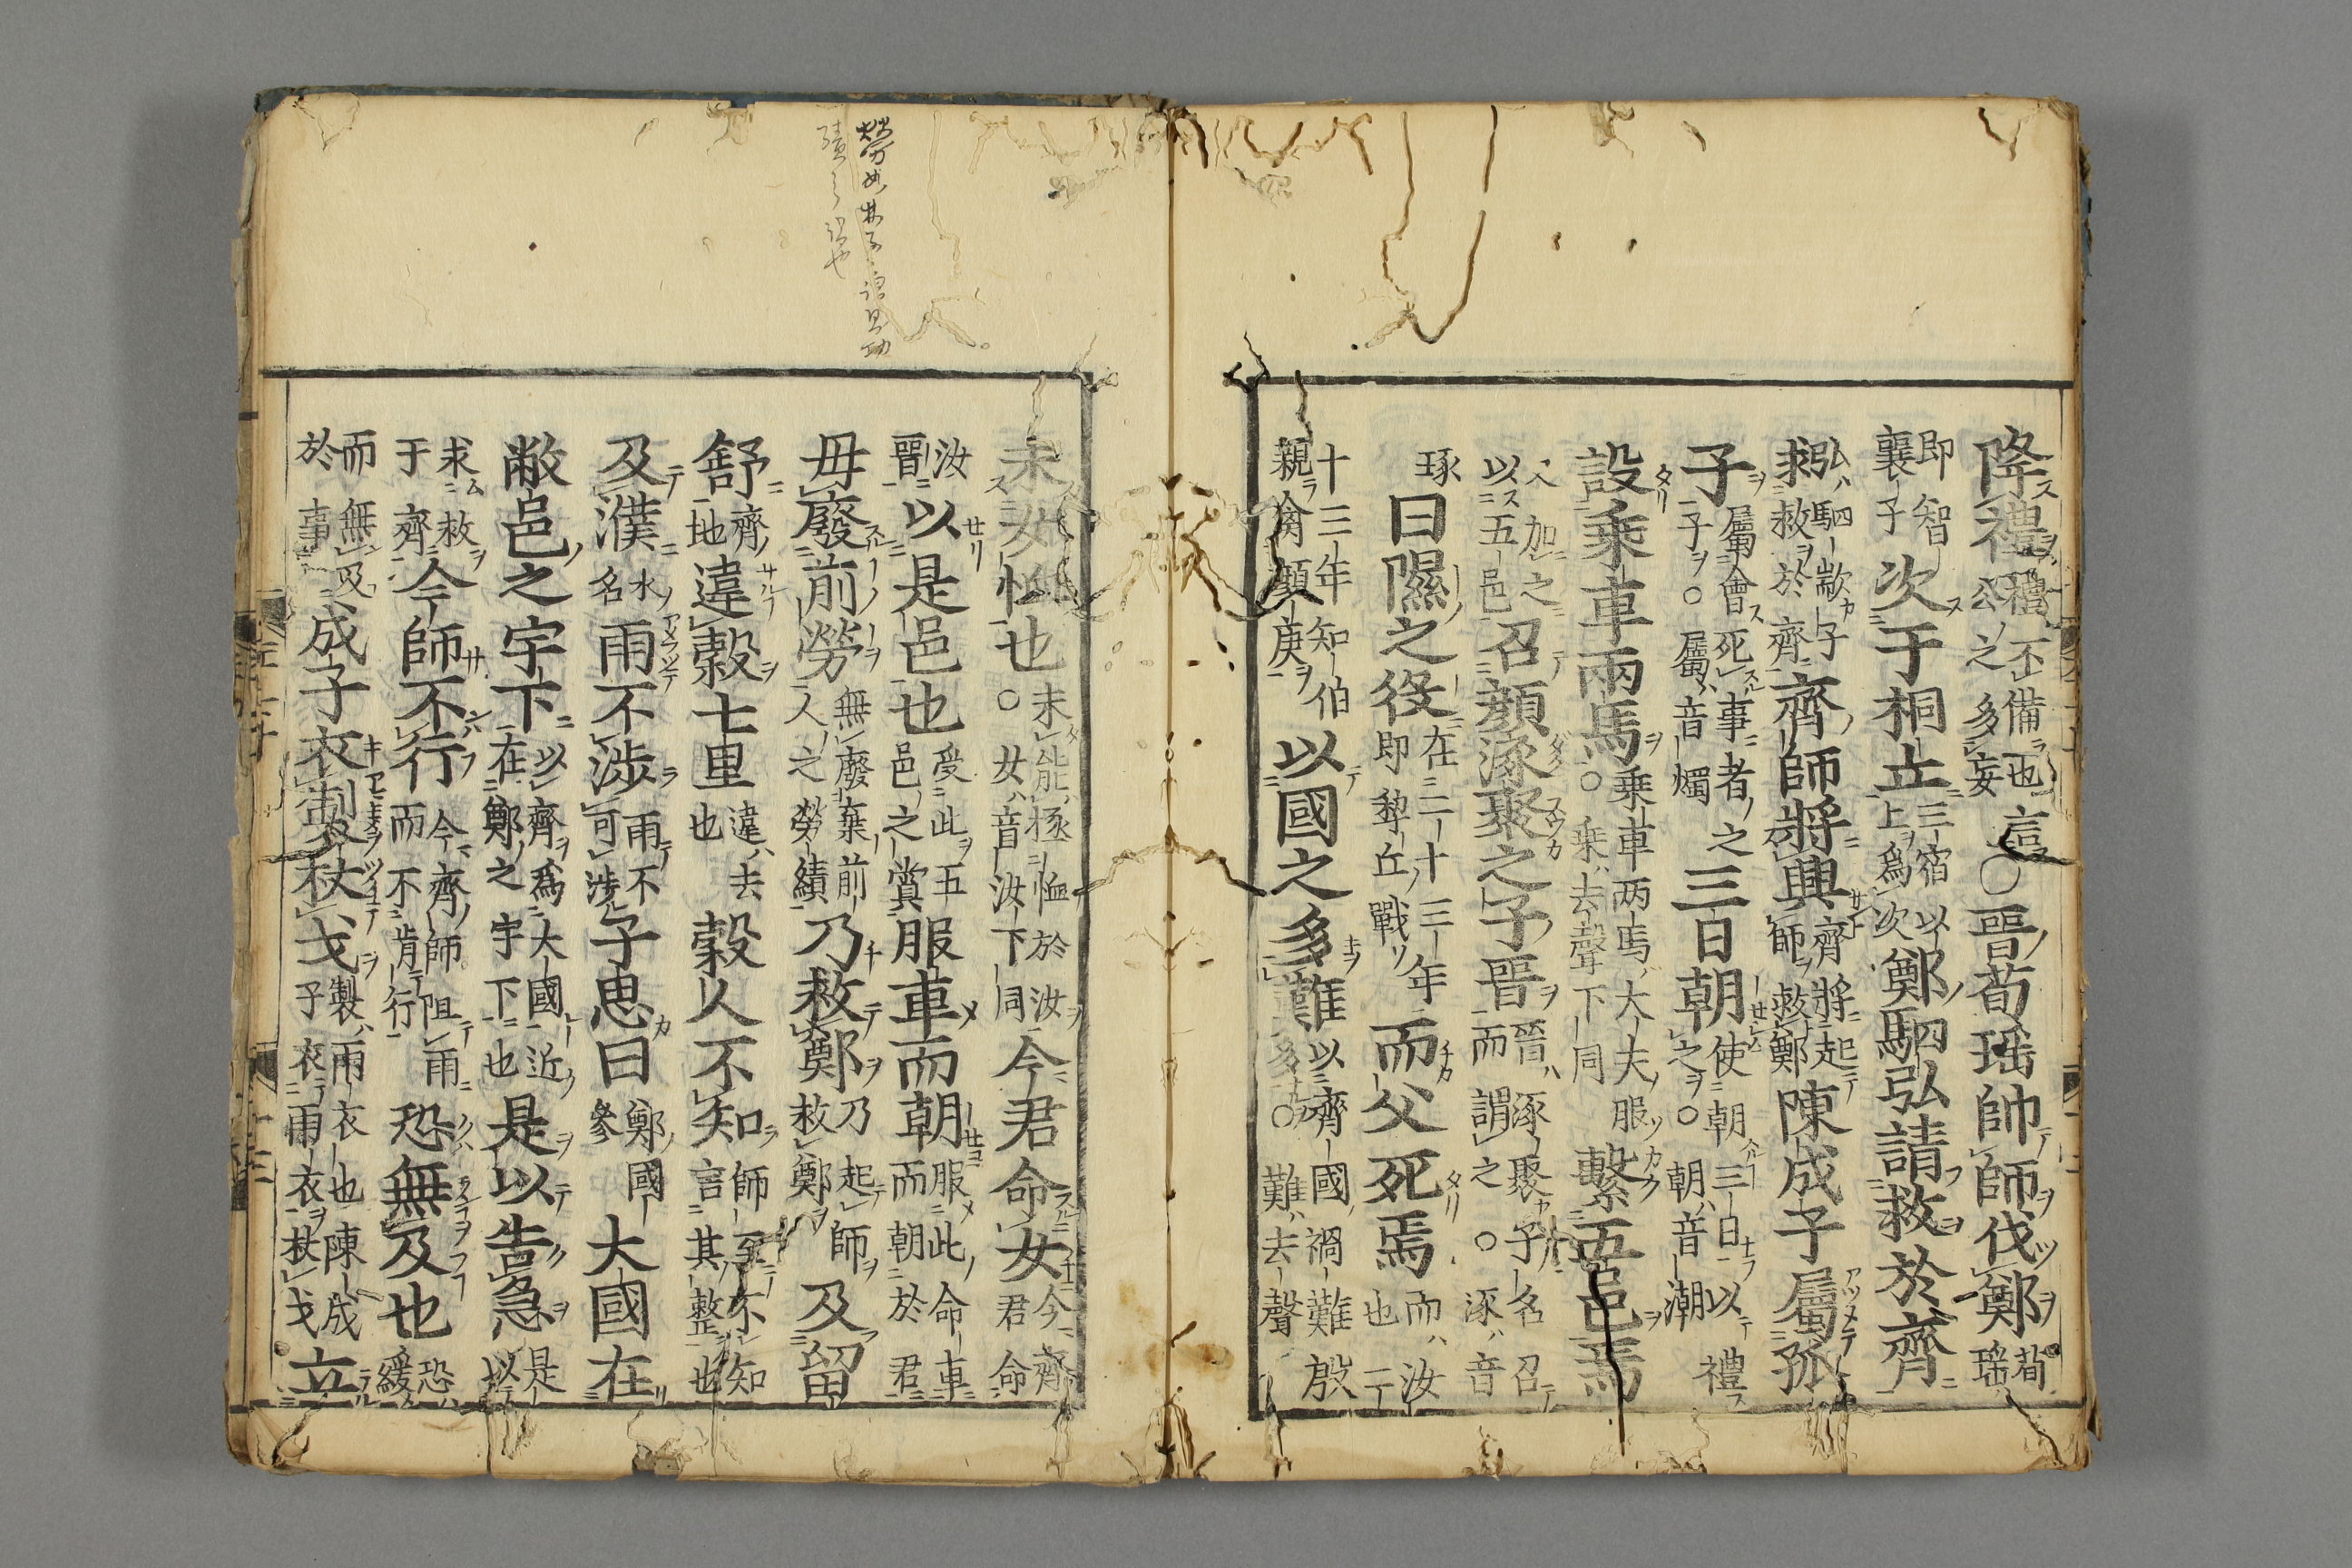 降禮禮不備也公之多妄這○晉荀瑶帥師伐鄭荀瑶
即智襄子次于桐丘三宿以上爲次鄭駟弘請救於齊
弘駟歂子求救於齊齊師將興齊將起師救鄭陳成子屬孤
子屬會死事者之子○屬音燭三日朝使朝三日以禮之○朝音潮
設乘車兩馬乗車両馬大夫服○乗去聲下同繫五邑焉
又加之以五邑召顔涿聚之子晉晉涿聚子名召而謂之○涿音
琢曰隰之役在二十三年即犂丘戰而父死焉而汝也二
十三年知伯親禽顔庚以國之多難以齊國禍難殷多○難去聲
未女恤也未能極恤於汝○女音汝下同今君命女今齊君命
汝晉以是邑也受此五邑之賞服車而朝服此命車而朝於君
毋廢前勞無廢棄前人之勞績乃救鄭乃起師救鄭及留
舒齊地違穀七里違去也穀人不知師至不知言其整也
及濮水名雨不渉雨不可渉子思曰鄭國參大國在
敝邑之宇下以齊爲大國近在鄭之宇下也是以告急是以
求救于齊今師不行今齊師阻雨而不肯行恐無及也恐緩
而無及於事成子衣製杖戈製雨衣也陳成子衣雨衣杖戈立